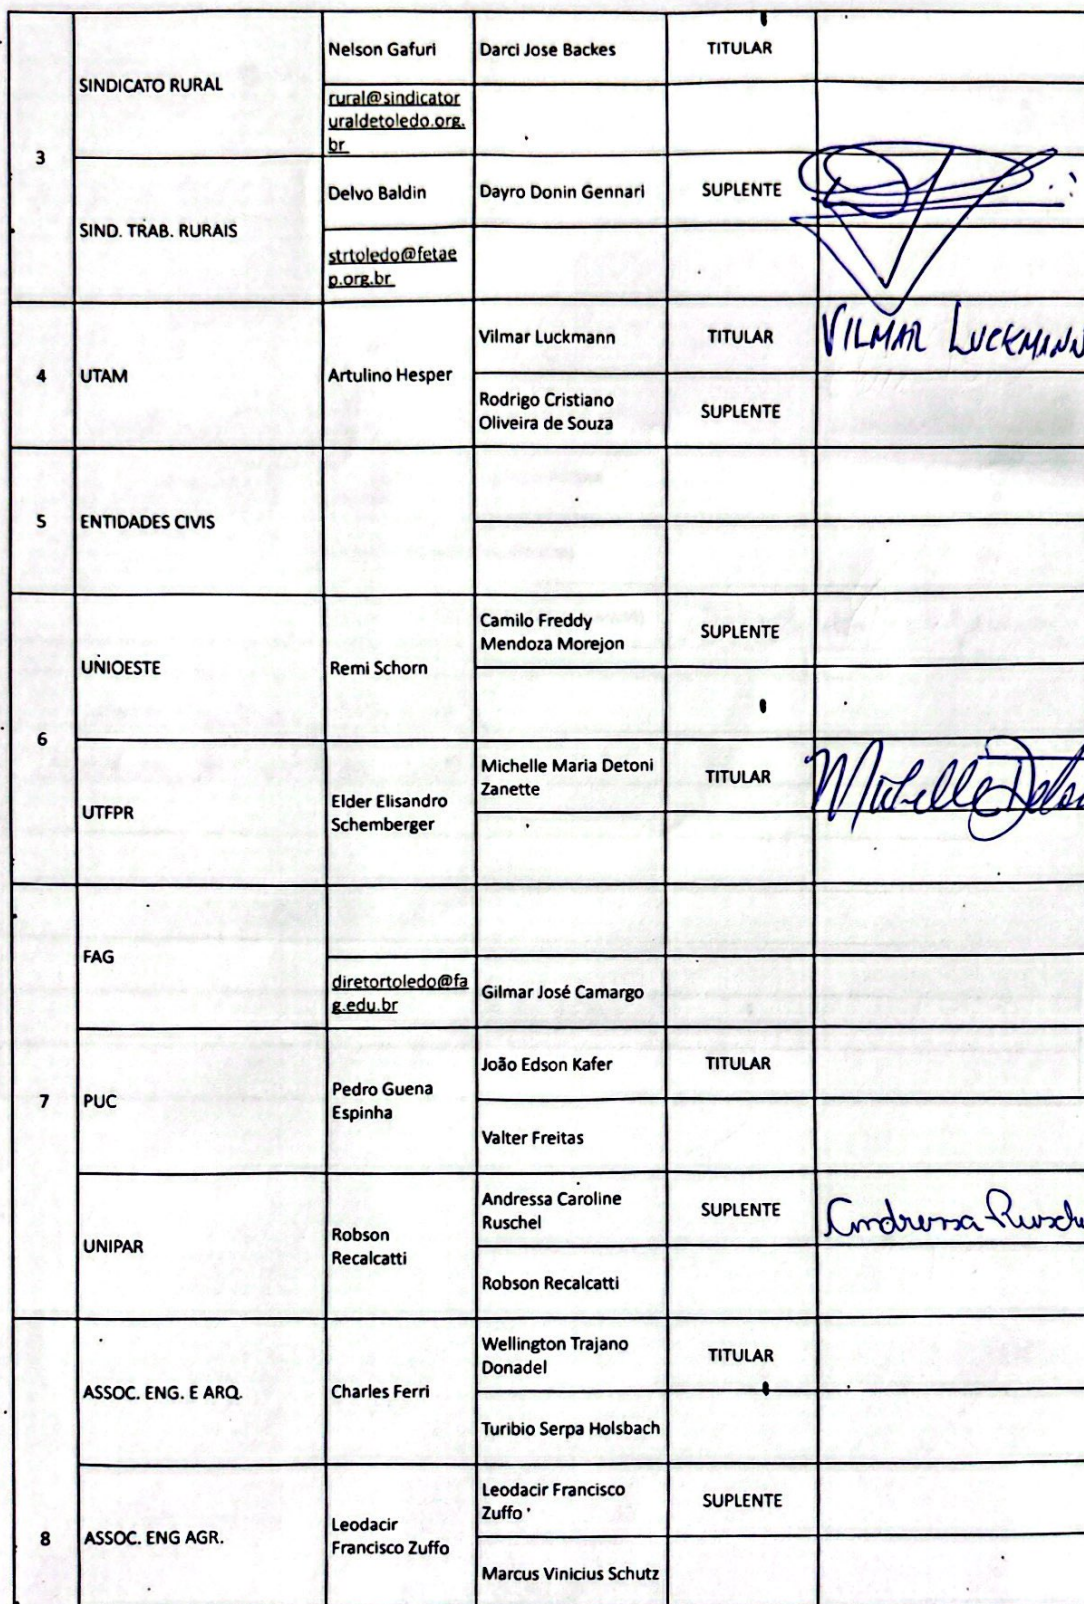 3
SINDICATO RURAL
Nelson Gafuri
Darci Jose Backes
TITULAR
rural@sindicator
uraldetoledo.org.
br
SIND. TRAB. RURAIS
Delvo Baldin
Dayro Donin Gennari
SUPLENTE
strtoledo@fetae
p.org.br
4
UTAM
Artulino Hesper
Vilmar Luckmann
TITULAR
VILMAR LUCKMANN
Rodrigo Cristiano
Oliveira de Souza
SUPLENTE
5
ENTIDADES CIVIS
6
UNIOESTE
Remi Schorn
Camilo Freddy
Mendoza Morejon
SUPLENTE
UTFPR
Elder Elisandro
Schemberger
Michelle Maria Detoni
Zanette
TITULAR
Michelle
7
FAG
diretortoledo@fa
g.edu.br
Gilmar José Camargo
PUC
Pedro Guena
Espinha
João Edson Kafer
TITULAR
Valter Freitas
UNIPAR
Robson
Recalcatti
Andressa Caroline
Ruschel
SUPLENTE
Andressa Rusche
Robson Recalcatti
8
ASSOC. ENG. E ARQ.
Charles Ferri
Wellington Trajano
Donadel
TITULAR
Turibio Serpa Holsbach
ASSOC. ENG AGR.
Leodacir
Francisco Zuffo
Leodacir Francisco
Zuffo
SUPLENTE
Marcus Vinicius Schutz